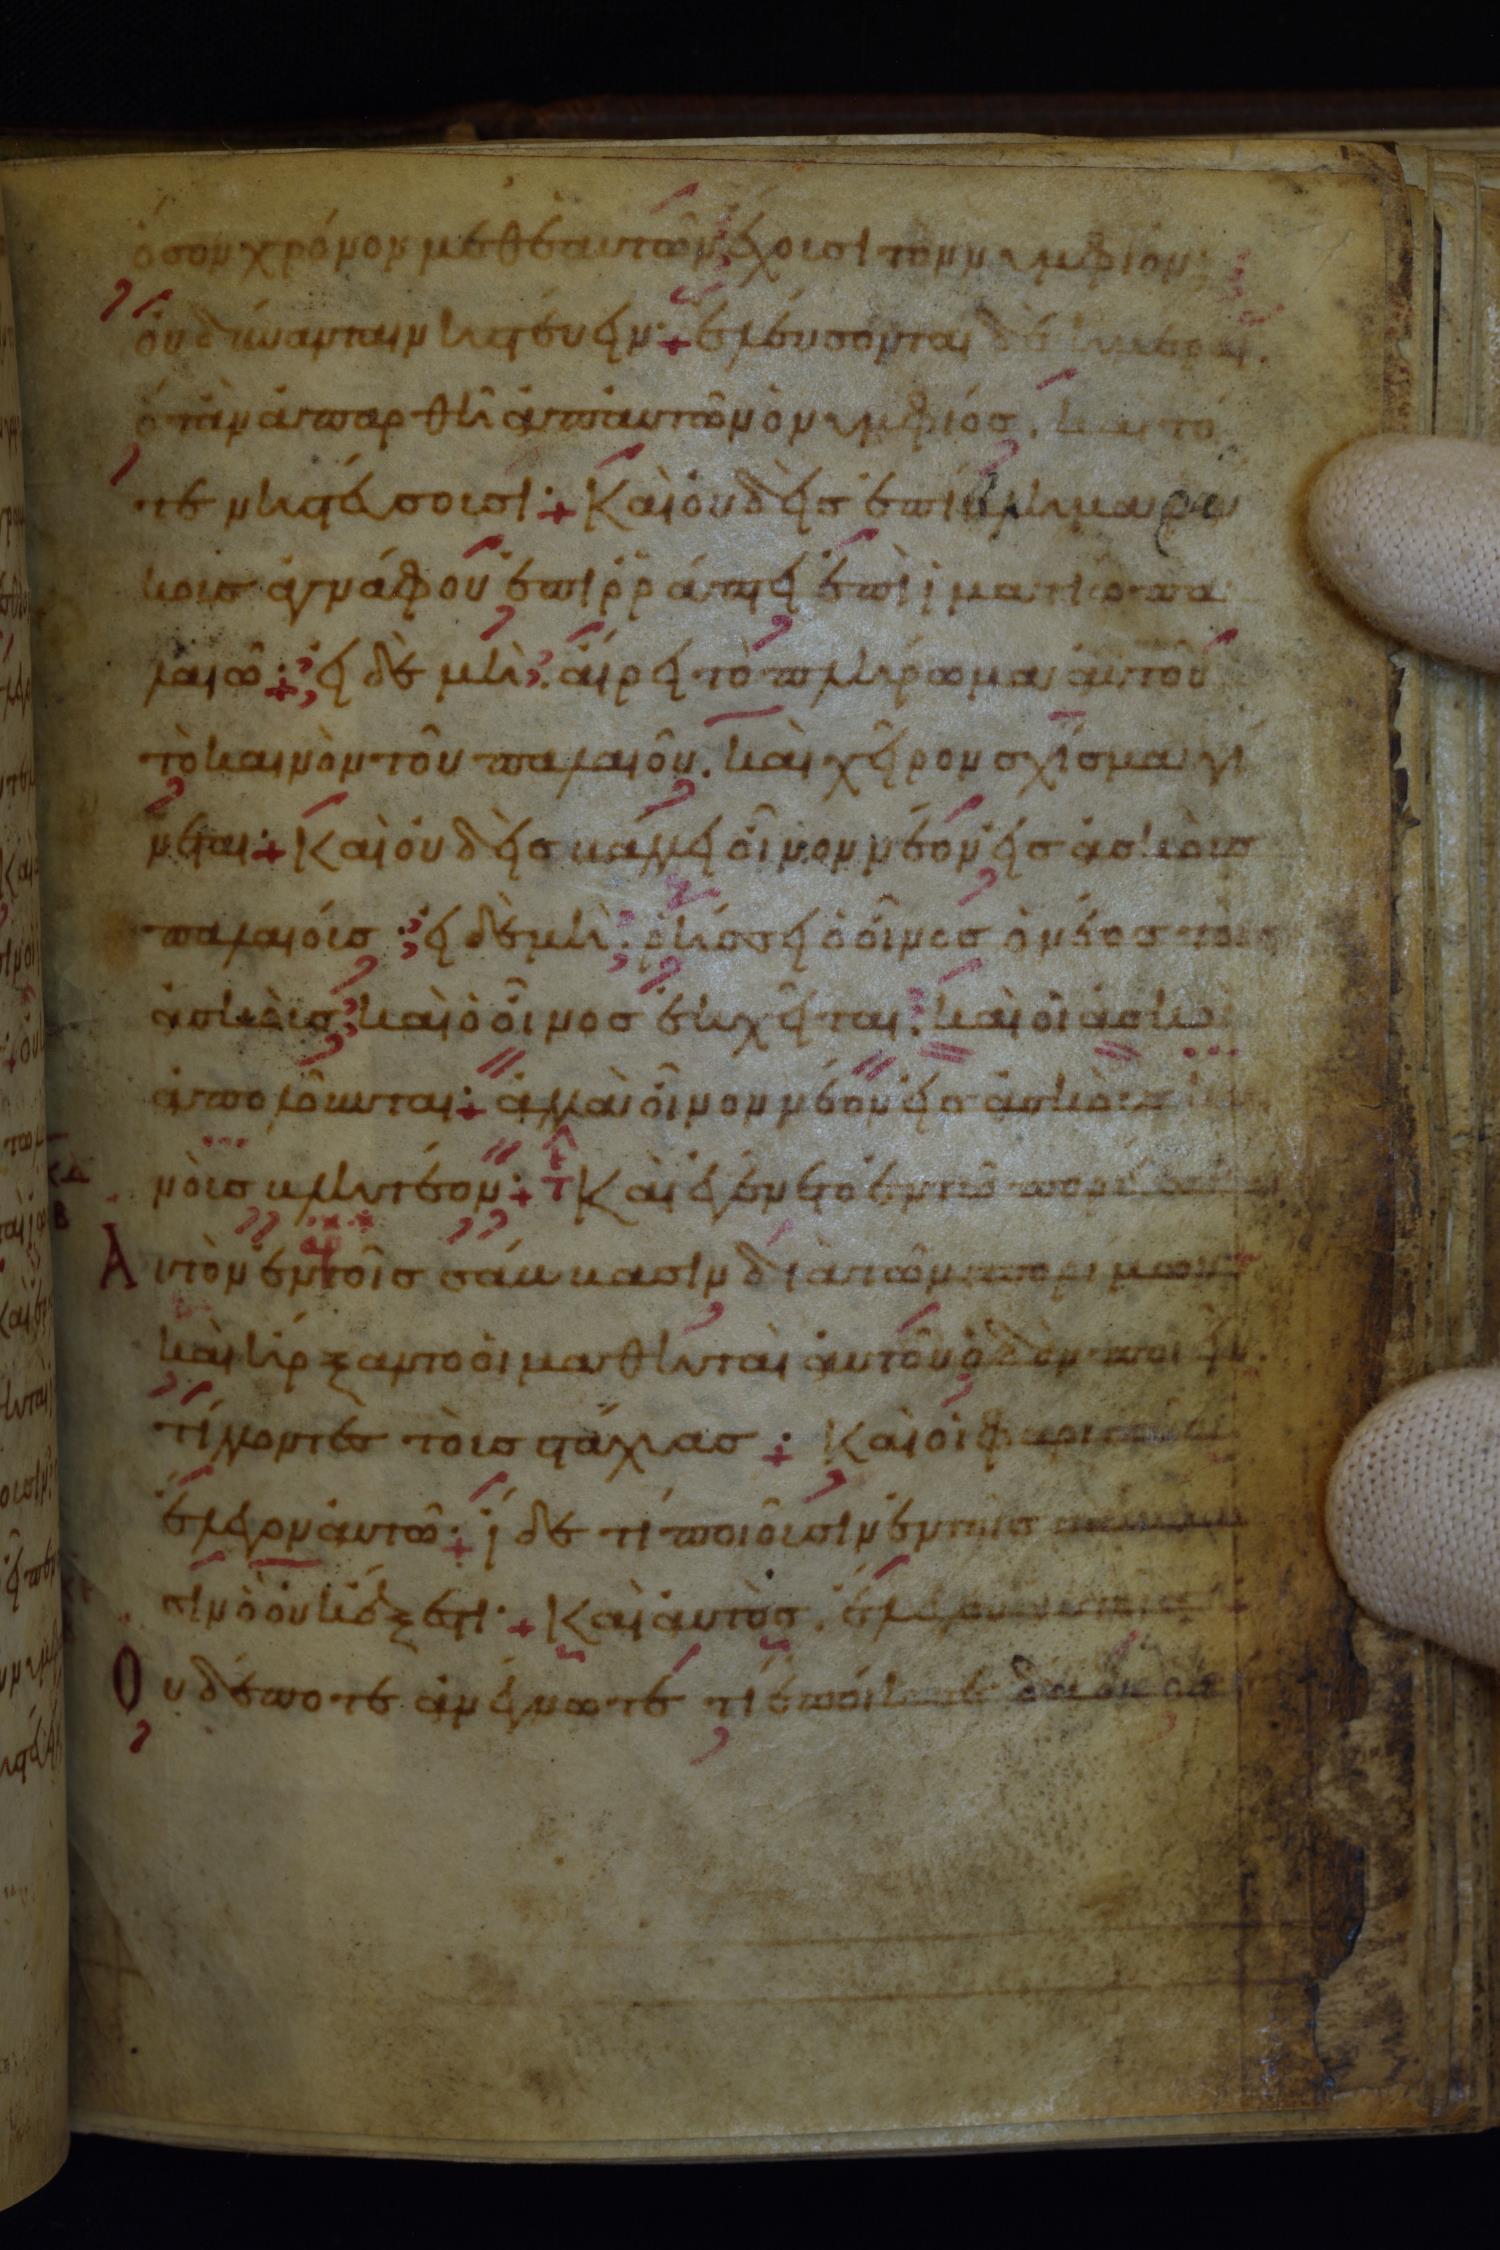 ὅσον χρόνον μεθ ἑαυτῶν ἔχουσι τὸν νυμφίον·
οὐ δύνανται νηστεύειν· + ἐλεύσονται δὲ ἡμέραι.
ὅταν ἀπαρθῆ ἀπ αὐτῶν ὁ νυμφίος. καὶ τό
τε νηστεύσουσι· + Καὶ οὐδεὶς ἐπίβλημα ρα
κους ἀγνάφου ἐπιρράπτει ἐπὶ ἱματίω πα
λαιῶ· + εἰ δὲ μὴ. αἴρει τὸ πλήρωμα αὐτοῦ
τὸ καινὸν τοῦ παλαιοῦ. καὶ χεῖρον σχίσμα γί
νεται· + Καὶ οὐδεὶς βάλλει οἶνον νέον εἰς ἀσκοὺς
παλαιούς· εἰ δὲ μὴ. ῥήσσει ὁ οἶνος ὁ νέος τοὺς
ἀσκοὺς καὶ ὁ οἶνος ἐκχεῖται. καὶ οἱ ἀσκοὶ
ἀπολοῦνται· + ἀλλὰ οἶνον νέον εἰς ἀσκοὺς και
νοὺς βλητέον· + Καὶ ἐγένετο ἐν τῶ
Αυτὸν ἐν τοῖς σάββασιν διὰ τῶν σπορίμων
καὶ ἤρξαντο οἱ μαθηταὶ αὐτοῦ ὁδὸν ποιεῖν.
τίλλοντες τοὺς στάχυας· + Καὶ οἱ φαρισαῖοι
ἔλεγον αὐτῶ· + ἴδε τί ποιοῦσιν ἐν τοῖς σάββα
σιν ὃ οὐκ ἔξεστι· + Καὶ αὐτὸς. ἔλεγεν αὐτοῖς
Ουδέποτε ἀνέγνωτε τί ἐποίησε δαυὶδ